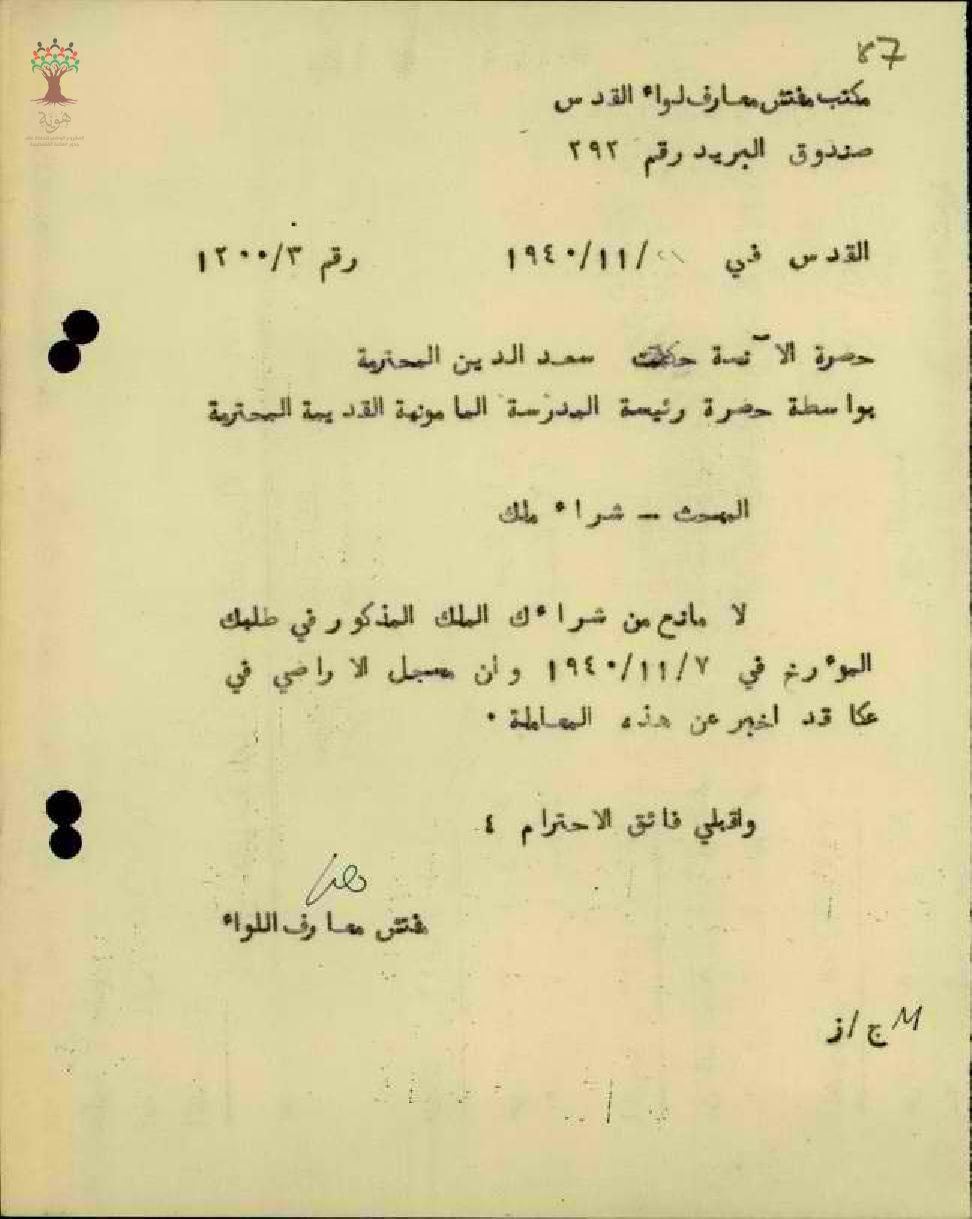 87
مكتب مفتش معارف لواء القدس
صندوق البريد رقم ٢٩٢
القدس في /١٩٤٠/١١ رقم ١٢٠٠/٣
حضرة الآنسة حكمت سعد الدين المحترمة
بواسطة حضرة رئيسة المدرسة المامونية القديمة المحترمة
المبحث - شراء ملك
لا مانع من شراءك الملك المذكور في طلبك
المؤرخ في ١٩٤٠/١١/٧ وان مسجل الاراضي في
عكا قد اخبر عن هذه المعاملة .
واقبلي فائق الاحترام ٤
مفتش معارف اللواء
ج/ز
هوية